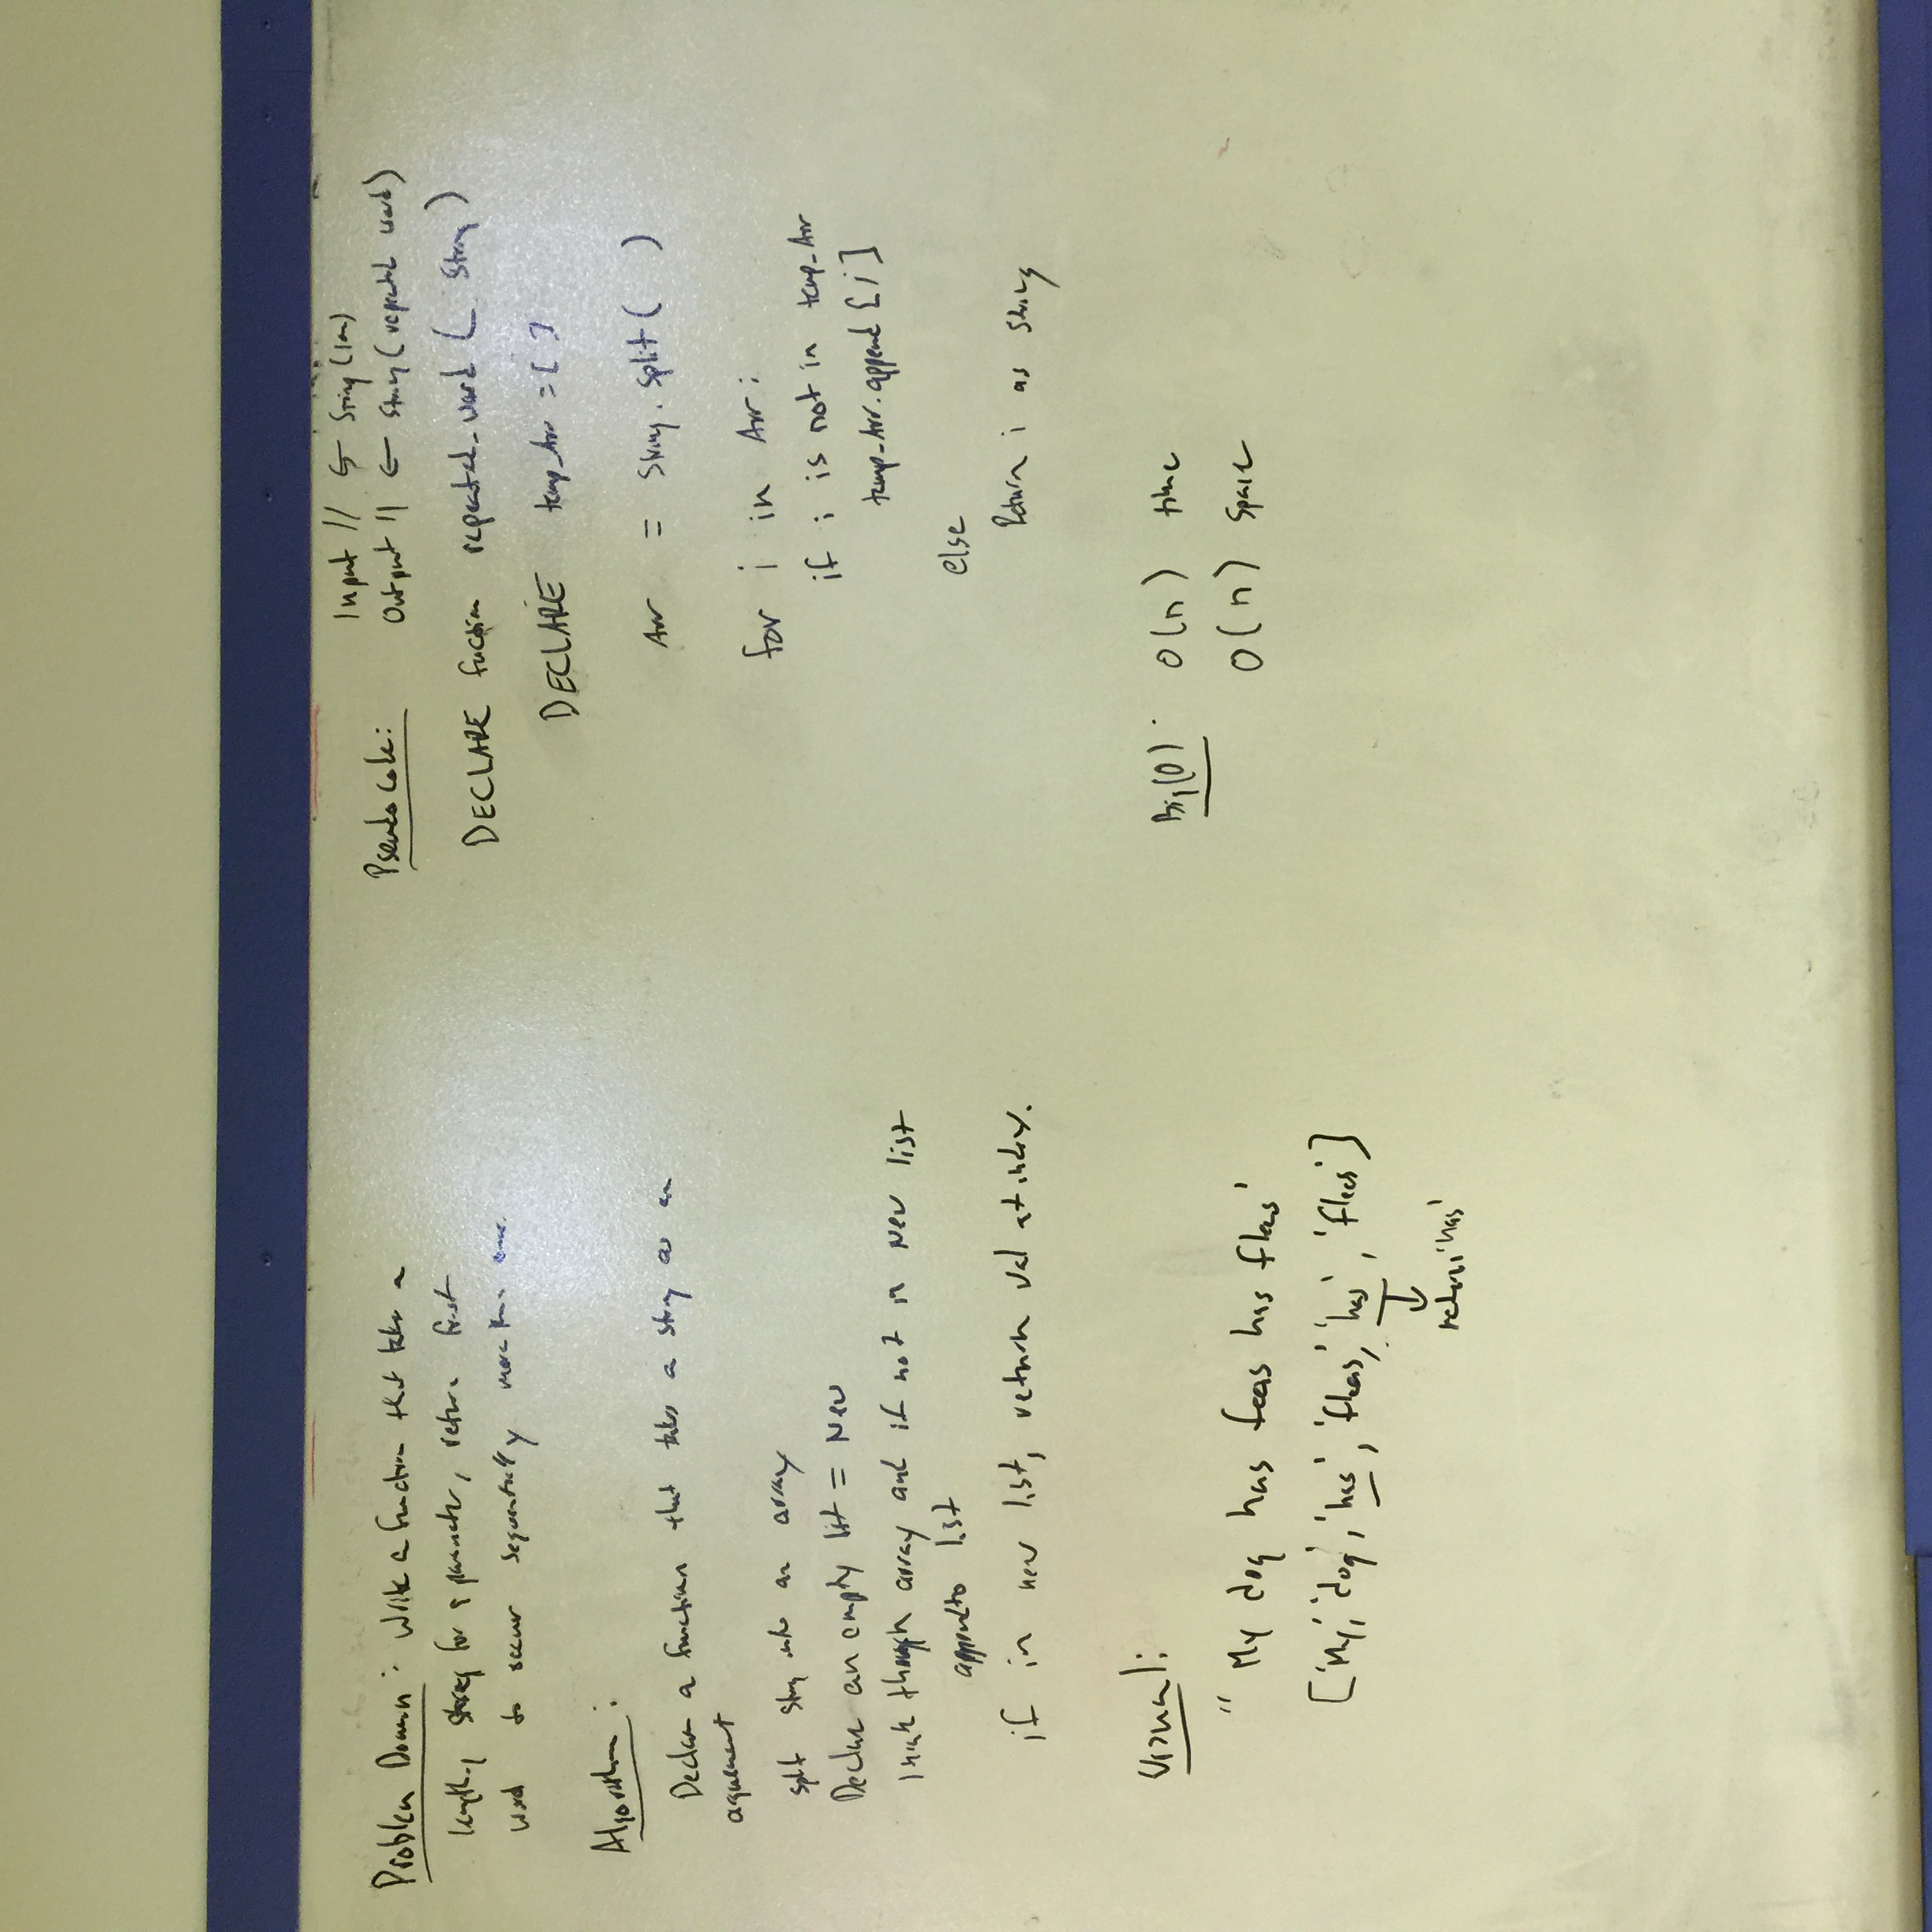 Problem Domain: Write a function that takes a
lengthy string for a parameter, return first
word to occur sequentially more than once.
Algorithm:
Declare a function that takes a string as an
arguement
split string into an array
Declare an empty list = New
through array and if not in New list
append to list
if in new list, return val at index.
Visual:
"My dog has feas has fleas'
['My', 'dog', 'has', 'fleas', 'has', 'fleas']
return 'has'
Input // ← String (
Pseudo Code:
Output // ← String (repeated word)
DECLARE fuction repeated_word ( String )
DECLARE temp_Arr = [ ]
Arr = String.split( )
for i in Arr:
if i is not in temp_Arr
temp_Arr.append [i]
else
Return i as string
Big(O): O(n) time
O(n) space